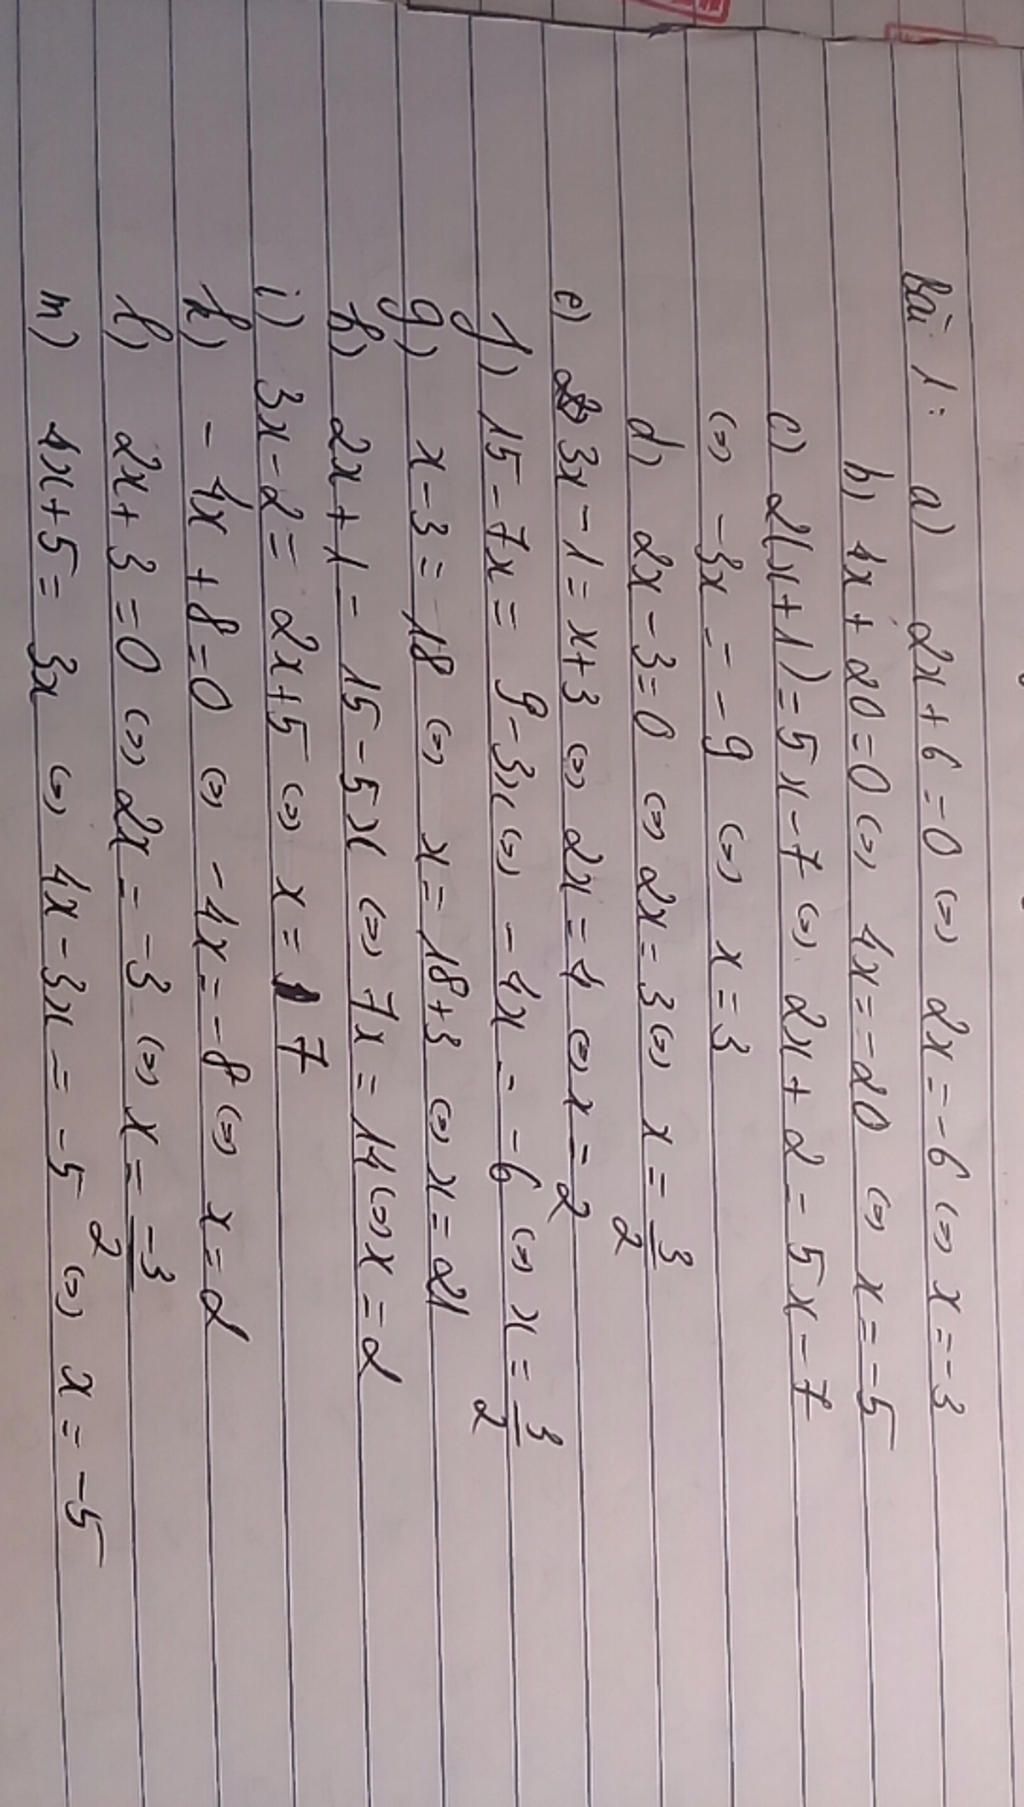 Bài 1: a) 2x + 6 = 0 (=) 2x = -6 (=) x = -3
b) 4x + 20 = 0 (=) 4x = -20 (=) x = -5
c) 2(x+1) = 5x - 7 (=) 2x + 2 = 5x - 7
(=) -3x = -9 (=) x = 3
d) 2x - 3 = 0 (=) 2x = 3 (=) x = 3/2
e) 3x - 1 = x + 3 (=) 2x = 4 (=) x = 2
f) 15 - 7x = 9 - 3x (=) -4x = -6 (=) x = 3/2
g) x - 3 = 18 (=) x = 18 + 3 (=) x = 21
h) 2x + 1 = 15 - 5x (=) 7x = 14 (=) x = 2
i) 3x - 2 = 2x + 5 (=) x = 7
k) -4x + 8 = 0 (=) -4x = -8 (=) x = 2
l) 2x + 3 = 0 (=) 2x = -3 (=) x = -3/2
m) 4x + 5 = 3x (=) 4x - 3x = -5 (=) x = -5